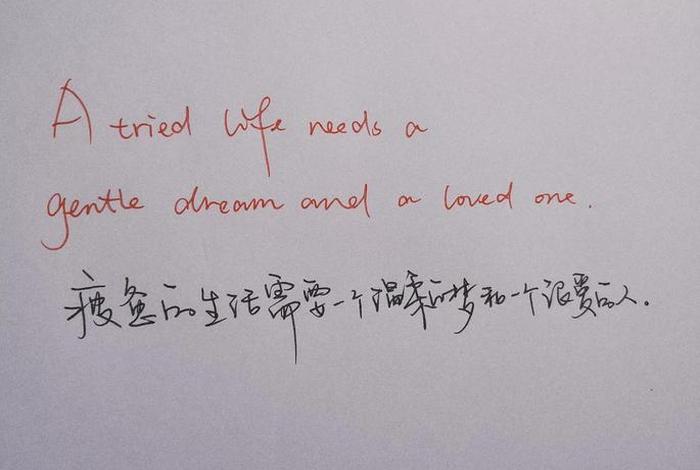 A tried life needs a
gentle dream and a loved one.
疲惫的生活需要一个温柔的梦和一个很爱的人.